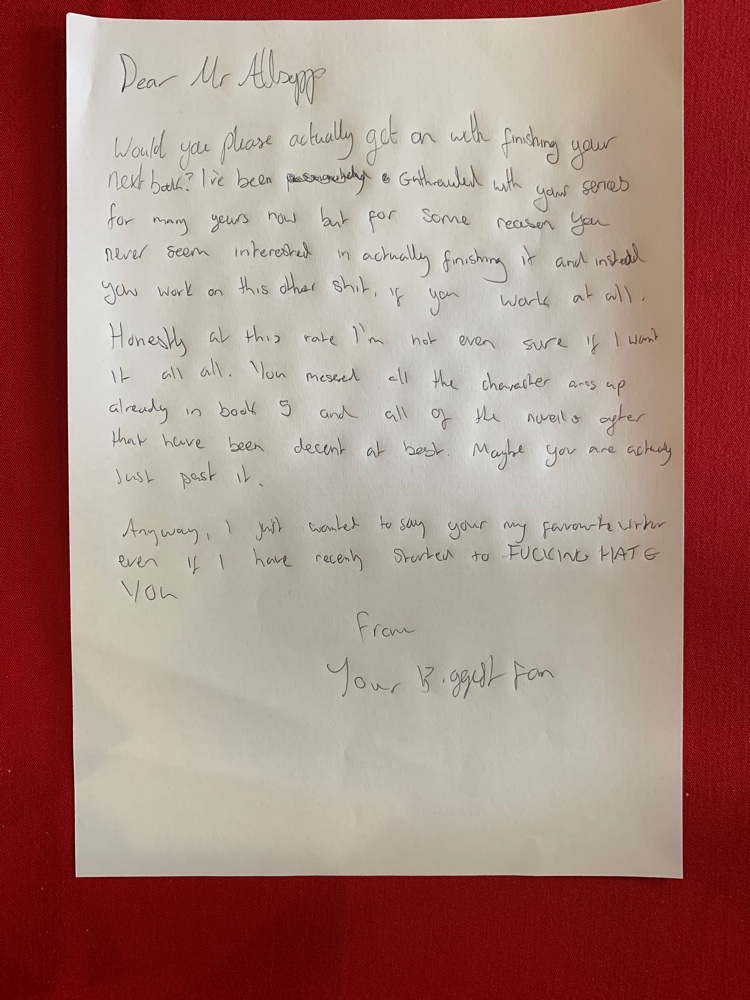 Dear Mr Allsopp
Would you please actually get on with finishing your
next book? I've been Enthrawled with your series
for many years now but for some reason you
never seem interested in actually finishing it and instead
you work on this other shit, if you work at all.
Honestly at this rate I'm not even sure if I want
it all all. You messed all the character arcs up
already in book 5 and all of the novels after
that have been decent at best. Maybe you are actually
just past it.
Anyway, I just wanted to say your my favourite writer
even if I have recently started to FUCKING HATE
YOU
From
Your Biggest Fan